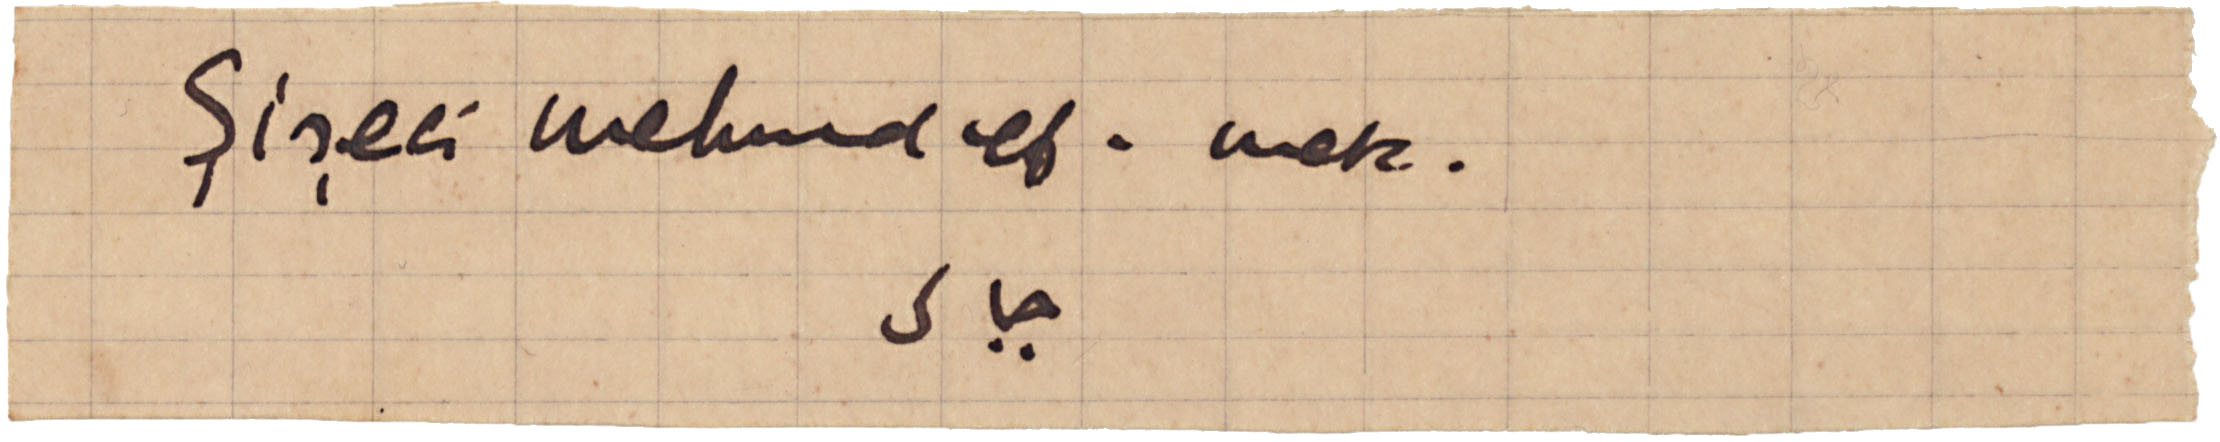 Şişeci mehmed ef. mek.